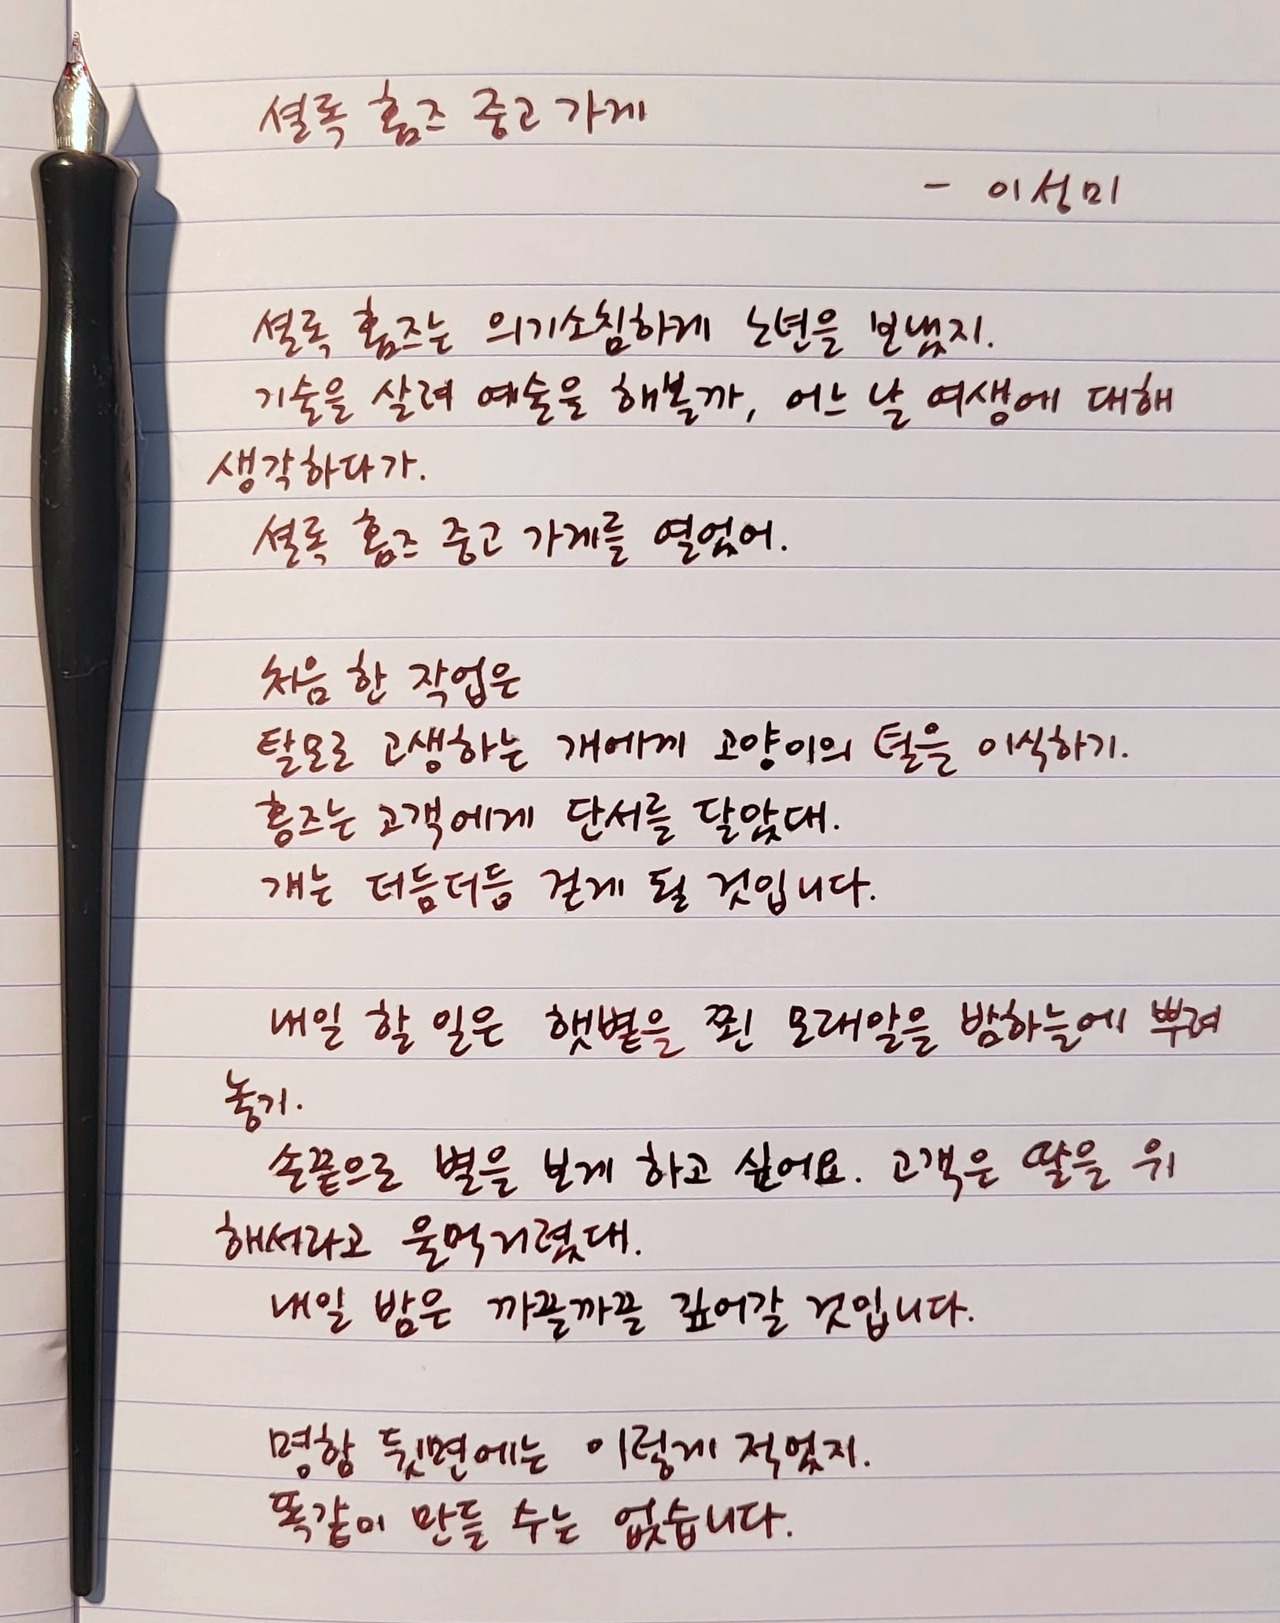 셜록 홈즈 중고 가게
- 이성미
셜록 홈즈는 의기소침하게 노년을 보냈지.
기술을 살려 예술을 해볼까, 어느 날 여생에 대해
생각하다가.
셜록 홈즈 중고 가게를 열었어.
처음 한 작업은
탈모로 고생하는 개에게 고양이의 털을 이식하기.
홈즈는 고객에게 단서를 달았대.
개는 더듬더듬 걷게 될 것입니다.
내일 할 일은 햇볕을 쬔 모래알을 밤하늘에 뿌려
놓기.
손끝으로 별을 보게 하고 싶어요. 고객은 딸을 위
해서라고 울먹거렸대.
내일 밤은 까끌까끌 깊어갈 것입니다.
명함 뒷면에는 이렇게 적었지.
똑같이 만들 수는 없습니다.